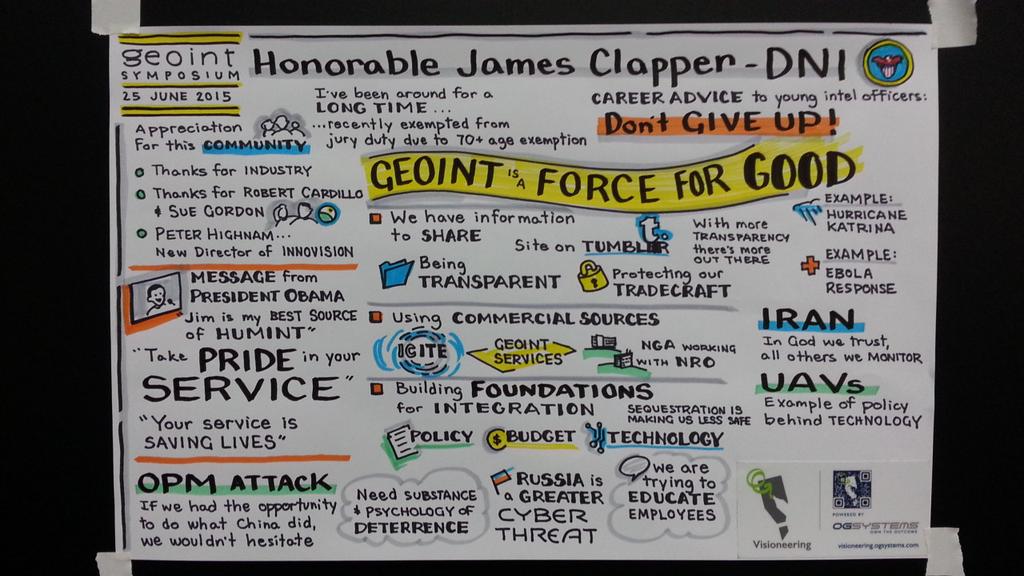 geoint
SYMPOSIUM
25 JUNE 2015
Honorable James Clapper - DNI
I've been around for a
LONG TIME...
...recently exempted from
jury duty due to 70+ age exemption
CAREER ADVICE to young intel officers:
Don't GIVE UP!
Appreciation
for this COMMUNITY
Thanks for INDUSTRY
Thanks for ROBERT CARDILLO
& SUE GORDON
PETER HIGHNAM...
New Director of INNOVISION
MESSAGE from
PRESIDENT OBAMA
Jim is my BEST SOURCE
of HUMINT"
"Take PRIDE in your
SERVICE"
"Your service is
SAVING LIVES"
OPM ATTACK
If we had the opportunity
to do what China did,
we wouldn't hesitate
GEOINT IS A FORCE FOR GOOD
We have information
to SHARE
Site on TUMBLER
t.
With more
TRANSPARENCY
there's more
OUT THERE
Being
TRANSPARENT
Protecting our
TRADECRAFT
EXAMPLE:
HURRICANE
KATRINA
EXAMPLE:
EBOLA
RESPONSE
Using COMMERCIAL SOURCES
IC ITE
GEOINT
SERVICES
NGA WORKING
WITH NRO
Building FOUNDATIONS
for INTEGRATION
SEQUESTRATION IS
MAKING US LESS SAFE
POLICY
$ BUDGET
TECHNOLOGY
IRAN
In God we trust,
all others we MONITOR
UAVs
Example of policy
behind TECHNOLOGY
Need SUBSTANCE
& PSYCHOLOGY OF
DETERRENCE
RUSSIA is
a GREATER
CYBER
THREAT
we are
trying to
EDUCATE
EMPLOYEES
Visioneering
POWERED BY
OGSYSTEMS
OWN THE OUTCOME
visioneering.ogsystems.com